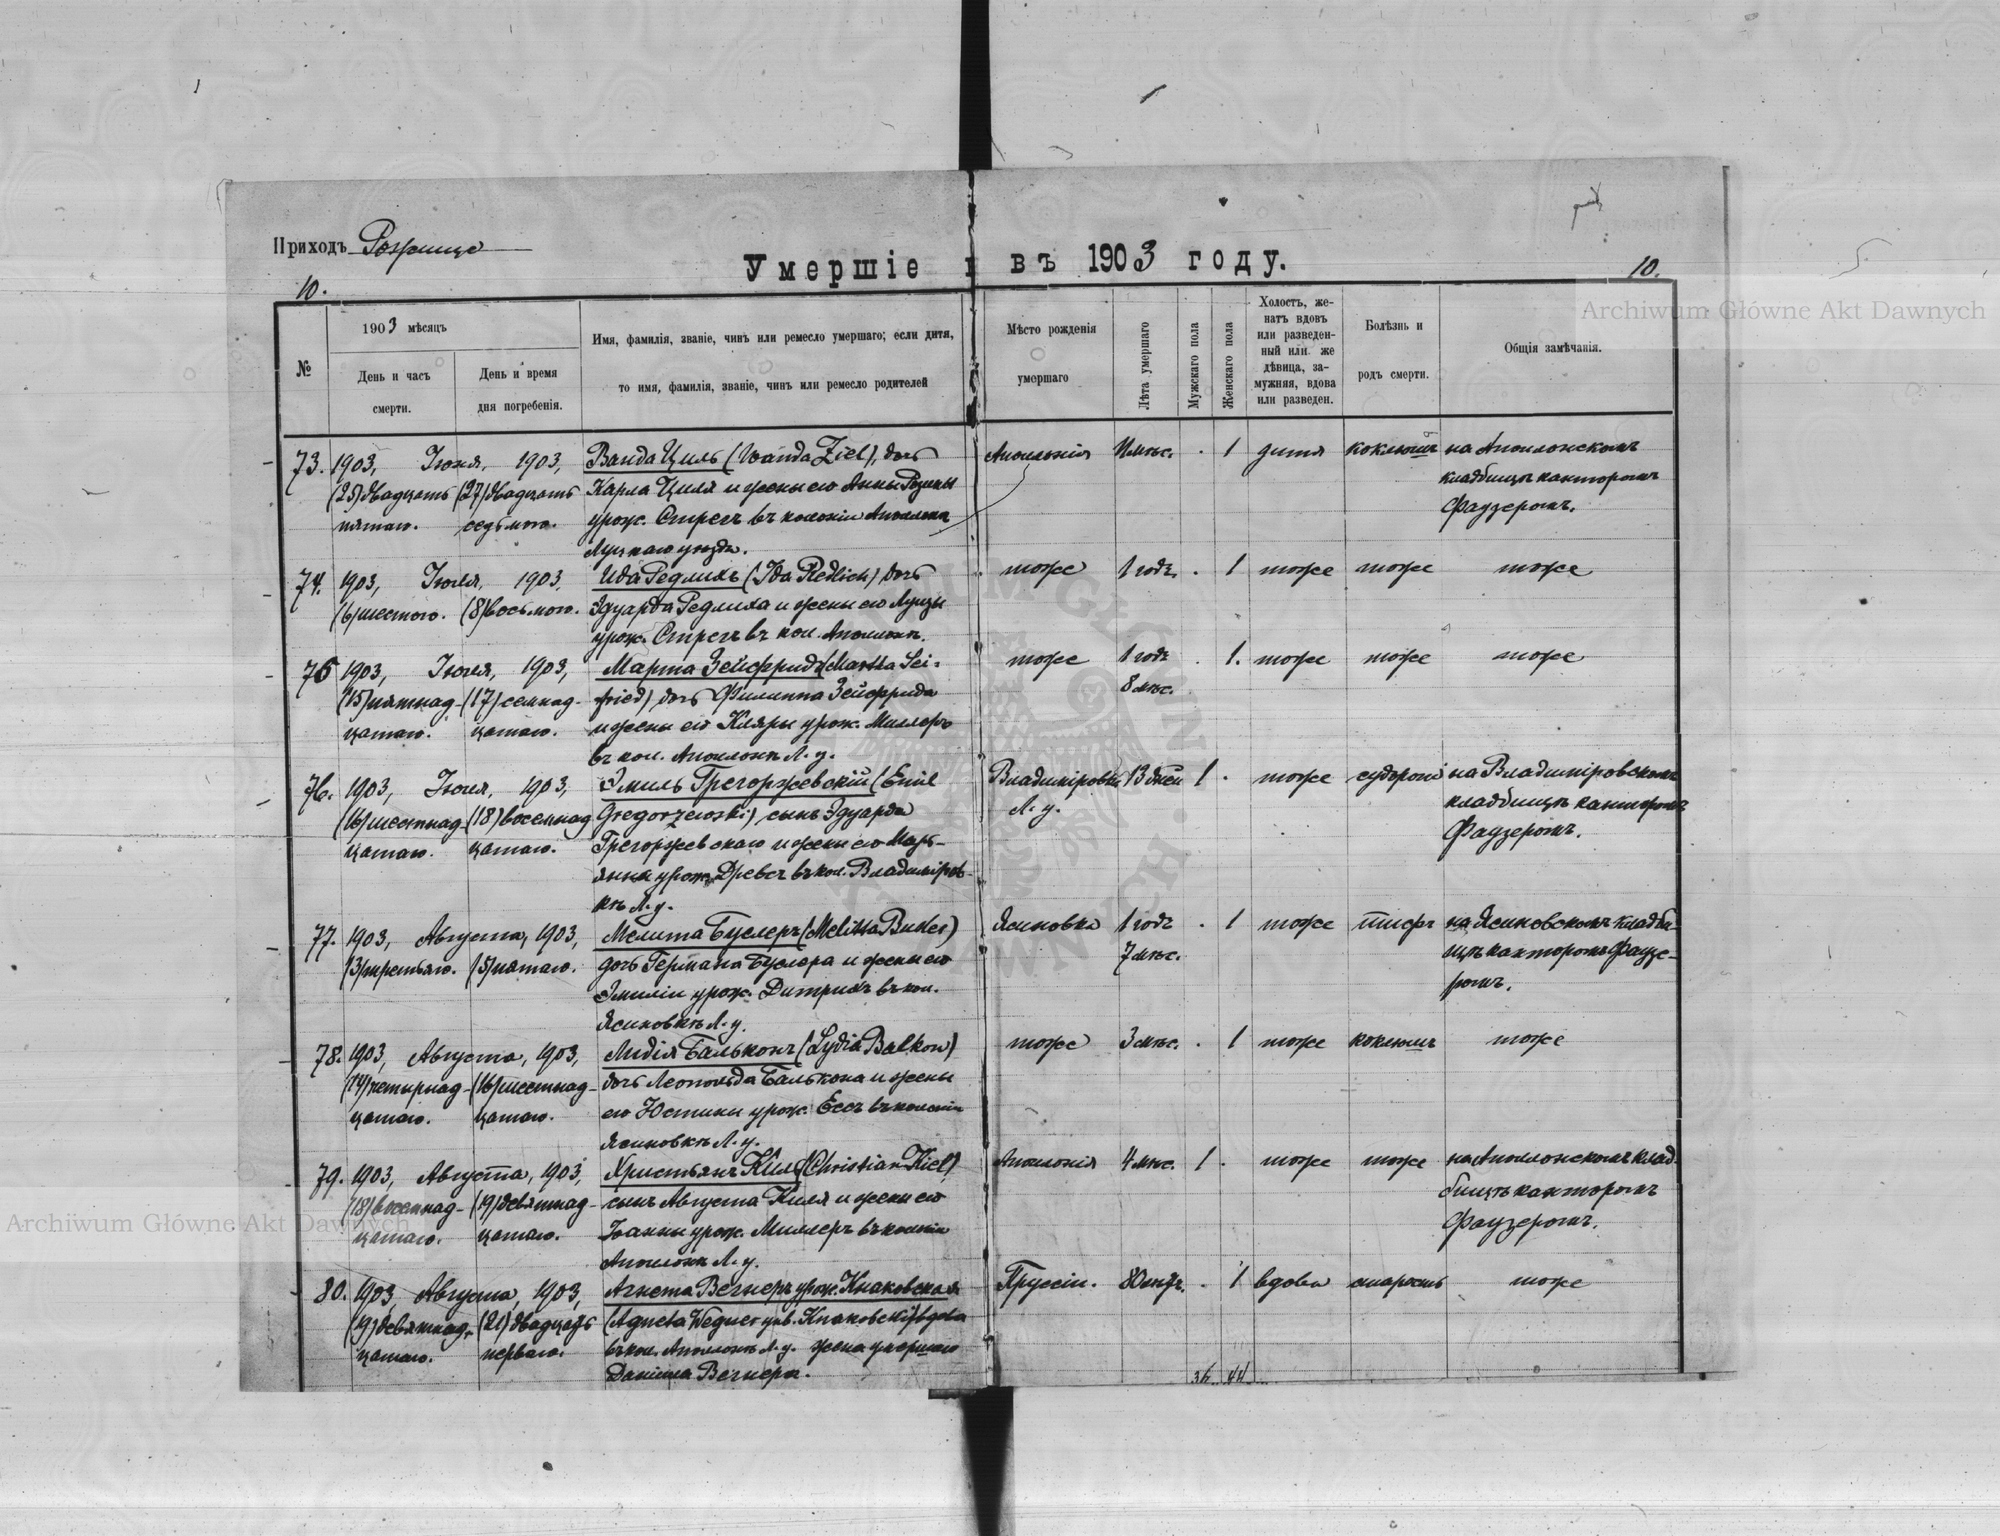 Приходъ Рожище
Умершіе въ 1903 году.
10.
10.
№
1903 мѣсяцъ
День и часъ
смерти.
День и время
дня погребенія.
Имя, фамилія, званіе, чинъ или ремесло умершаго; если дитя,
то имя, фамилія, званіе, чинъ или ремесло родителей
Мѣсто рожденія
умершаго
Лѣта умершаго
Мужскаго пола
Женскаго пола
Холостъ, же-
натъ вдовъ
или разведен-
ный или же
дѣвица, за-
мужняя, вдова
или разведен.
Болѣзнь и
родъ смерти.
Общія замѣчанія.
73. 1903, Іюня, 1903, Ванда Циль (Wanda Ziel), дочь Апполонія мѣс. . 1 дитя коклюшъ на Аполонскомъ
(25) двадцать (27) двадцать Карла Циля и жены его Анны Розины кладбищѣ канторомъ
пятаго. седьмого. урож. Стрегъ въ колоніи Аполлонка Фаузеромъ.
Луцкаго уѣзда.
74. 1903, Іюля, 1903, Ида Редлихъ (Ida Redlich) дочь тоже 1 годъ. . 1 тоже тоже тоже
(6) шестого. (8) восьмого. Эдуарда Редлиха и жены его Луизы
урож. Стрегъ въ кол. Аполлонк.
75 1903, Іюля, 1903, Марта Зейфридъ (Martha Sei- тоже 1 годъ . 1. тоже тоже тоже
(15) пятнад- (17) семнад- fried) дочь Филиппа Зейфрида 8 мѣс.
цатаго. цатаго. и жены его Кляры урож. Миллеръ
въ кол. Аполонк Л. у.
76. 1903, Іюля, 1903, Эмиль Грегоржевскій (Emil Владиміровка 13 дней 1 . тоже судороги на Владиміровскомъ
(16) шестнад- (18) восемнад Gregorzewski) сынъ Эдуарда Л. у. кладбищѣ канторомъ
цатаго. цатаго. Грегоржевскаго и жены его Марь- Фаузеромъ.
янна урож. Древсъ въ кол. Владиміров-
кѣ Л. у.
77. 1903, Августа, 1903, Мелита Буслеръ (Melitta Busler) Ясиновка 1 годъ . 1 тоже тифъ на Ясиновскомъ кладби-
(3) третьяго. (5) пятаго. дочь Германа Буслера и жены его 7 мѣс. щѣ канторомъ Фаузе-
Эмиліи урож. Дитрихъ въ кол. ромъ.
Ясиновкѣ Л. у.
78. 1903, Августа, 1903, Лидія Бальконъ (Lydia Balkon) тоже 3 мѣс. . 1 тоже коклюшъ тоже
(14) четырнад- (16) шестнад- дочь Леопольда Балькона и жены
цатаго. цатаго. его Юстины урож. Ессъ въ колоніи
Ясиновкѣ Л. у.
79. 1903, Августа, 1903, Христьянъ Киль (Christian Kiel) Аполонія 4 мѣс. 1 . тоже тоже на Аполонскомъ клад-
(18) восемнад- (19) девятнад- сынъ Августа Киля и жены его бищѣ канторомъ
цатаго. цатаго. Іоанны урож. Миллеръ въ колоніи Фаузеромъ.
Аполонк Л. у.
80. 1903, Августа, 1903, Агнета Вегнеръ урож. Кнаковская Пруссіи. 80 лѣтъ. . 1 вдова старость тоже
(19) девятнад- (21) двадцать (Agneta Wegner урв. Кнаковски) вдова
цатаго. перваго. въ кол. Аполонк Л. у. жена умершаго
Даніила Вегнера.
36. 44.
Archiwum Główne Akt Dawnych
Archiwum Główne Akt Dawnych